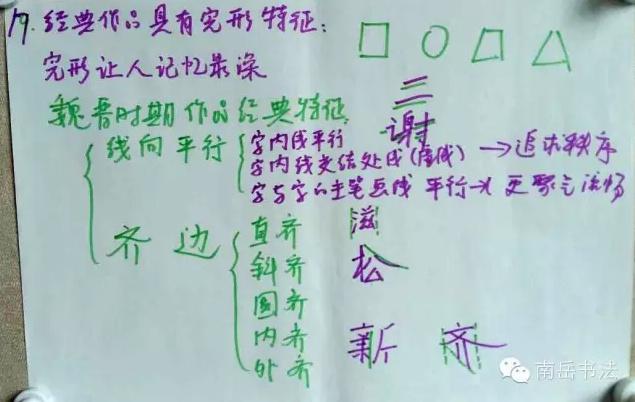 19.经典作品具有完形特征:
完形让人记忆最深
魏晋时期作品经典特征
三
谢
线向平行
字内线平行
字内线交结处成(虚线)→追求秩序
字与字的主笔画线平行→更聚气流畅
齐边
直齐 滋
斜齐 松
圆齐
内齐 新 济
外齐
南岳书法